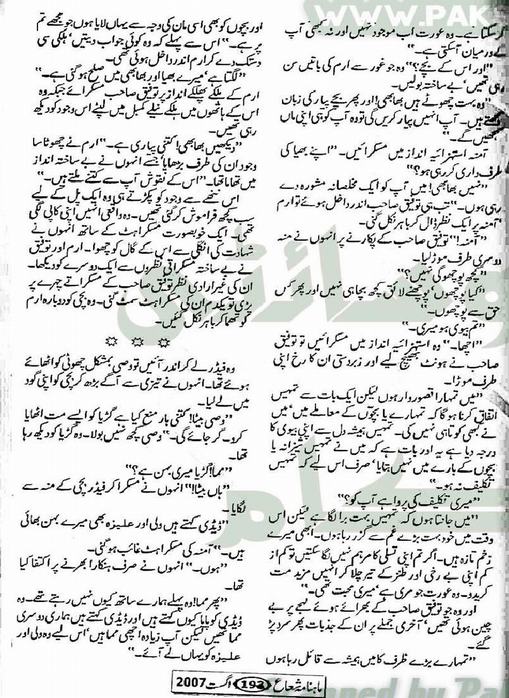 WWW.PAK
کر سکتا ہے۔ وہ عورت اب موجود نہیں اور نہ کبھی آپ
کے درمیان آسکتی ہے۔"
"اور اس کے بچے؟" وہ جو غور سے ارم کی باتیں سن
رہی تھیں' بے ساختہ بولیں۔
"وہ بہت چھوٹے ہیں بھابھی! اور پھر بچے پیار کی زبان
سمجھتے ہیں۔ آپ انہیں پیار کریں گی تو وہ آپ کو ہی اپنی ماں
سمجھیں گے۔"
آمنہ استہزائیہ انداز میں مسکرائیں۔ "اپنے بھیا کی
طرف داری کر رہی ہو؟"
"نہیں بھابھی! میں آپ کو ایک مخلصانہ مشورہ دے
رہی ہوں۔" تب ہی توفیق صاحب اندر داخل ہوئے تو ارم
آمنہ پر ایک نظر ڈال کر باہر نکل گئی۔
"آمنہ!" توفیق صاحب کے پکارنے پر انہوں نے منہ
دوسری طرف موڑ لیا۔
"کچھ پوچھو گی نہیں؟"
"کیا پوچھوں' پوچھنے لائق کچھ بچا ہی نہیں اور پھر کس
حق سے پوچھوں۔"
"تم بیوی ہو میری۔"
"اچھا۔" وہ استہزائیہ انداز میں مسکرائیں تو توفیق
صاحب نے ہونٹ بھینچ لیے اور زبردستی ان کا رخ اپنی
طرف موڑا۔
"میں تمہارا قصوروار ہوں لیکن ایک بات سے تمہیں
اتفاق کرنا ہو گا کہ تمہارے یا بچوں کے معاملے میں' میں
نے کبھی کوتاہی نہیں کی۔ تمہیں ہمیشہ دل سے اپنی بیوی کا
درجہ دیا ہے یہ اور بات ہے کہ میں نے تمہیں شہزانہ یا
بچوں کے بارے میں نہیں بتایا' صرف اس لیے کہ تمہیں
تکلیف نہ ہو۔"
"میری تکلیف کی پروا ہے آپ کو؟"
"میں جانتا ہوں کہ تمہیں بہت برا لگا ہے لیکن اس
وقت میں خود بہت بڑے غم سے گزر رہا ہوں۔ ابھی میرے
زخم تازہ ہیں۔ اگر تم اپنی تسلی کا مرہم نہیں لگا سکتیں تو کم از
کم اپنی بے رخی اور طنز کے تیر چلا کر انہیں مزید مت
کریدو۔ وہ عورت جو مری ہے' میری محبت تھی۔"
اور وہ جو توفیق صاحب کے بھرائے ہوئے لہجے پر بے
چین ہوئی تھیں' آخری جملے پر ان کے جذبات پھر سرد پڑ
گئے۔
"تمہارے بڑے ظرف کا میں ہمیشہ سے قائل رہا ہوں
اور بچوں کو بھی اسی مان کی وجہ سے یہاں لایا ہوں جو مجھے تم
پر ہے۔" اس سے پہلے کہ وہ کوئی جواب دیتیں' ہلکی سی
دستک دے کر ارم اندر داخل ہوئی تھی۔
"لگتا ہے' میرے بھیا اور بھابھی میں صلح ہو گئی ہے۔"
ارم کے ہلکے پھلکے انداز پر توفیق صاحب مسکرائے جبکہ وہ
اس کے ہاتھوں میں ہلکے نیلے کمبل میں لپٹے اس وجود کو دیکھ
رہی تھیں۔
"دیکھیں بھابھی! کتنی پیاری ہے۔" ارم نے چھوٹا سا
وجود ان کی طرف بڑھایا' جسے انہوں نے بے ساختہ انداز
میں تھاما تھا۔ "اس کے نقوش آپ سے کتنے ملتے ہیں۔"
اس ننھے سے وجود کو پکڑتے ہی وہ ایک پل کے لیے
سب کچھ فراموش کر گئی تھیں۔ وہ واقعی انہیں اپنی کاپی لگی
تھی۔ ایک خوبصورت مسکراہٹ کے ساتھ انہوں نے
شہادت کی انگلی سے اس کے گال کو چھوا۔ ارم اور توفیق
نے بے ساختہ مسکراتی نظروں سے ایک دوسرے کو دیکھا۔
ان کی غیر ارادی نظر توفیق صاحب کے مسکراتے چہرے پر
پڑی تو یکدم ان کی مسکراہٹ سمٹ گئی۔ وہ بچی کو دوبارہ ارم
کو تھما کر باہر نکل گئیں۔
* * *
وہ فیڈر لے کر اندر آئیں تو وصی بمشکل چھوٹی کو اٹھائے
ہوئے تھا۔ انہوں نے تیزی سے آگے بڑھ کر بچی کو اپنی گود
میں لے لیا۔
"وصی بیٹا! کتنی بار منع کیا ہے گڑیا کو ایسے مت اٹھایا
کرو۔ گر جائے گی۔" وصی کچھ نہیں بولا۔ وہ گڑیا کو دیکھ رہا
تھا۔
"مما! گڑیا میری بہن ہے؟"
"ہاں بیٹا!" انہوں نے مسکرا کر فیڈر بچی کے منہ سے
لگایا۔
"ڈیڈی کہتے ہیں ولی اور علیزہ بھی میرے بہن بھائی
ہیں۔" آمنہ کی مسکراہٹ غائب ہو گئی۔
"ہوں۔" انہوں نے صرف ہنکارا بھرنے پر اکتفا کیا
تھا۔
"پھر مما! وہ پہلے ہمارے ساتھ کیوں نہیں رہتے تھے۔ وہ
ڈیڈی کو پاپا کیوں کہتے ہیں اور ڈیڈی کہتے ہیں ہماری دوسری
مما تھیں لیکن آپ زیادہ اچھی مما ہیں' اس لیے وہ ولی اور
علیزہ کو یہاں لے آئے۔"
ماہنامہ شعاع 193 اگست 2007